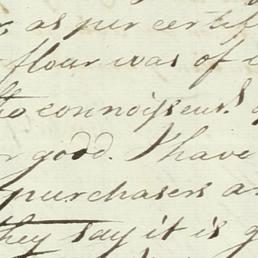 as per certif
flour was of
to connoisseurs
good. I have
purchasers a
they say it is g